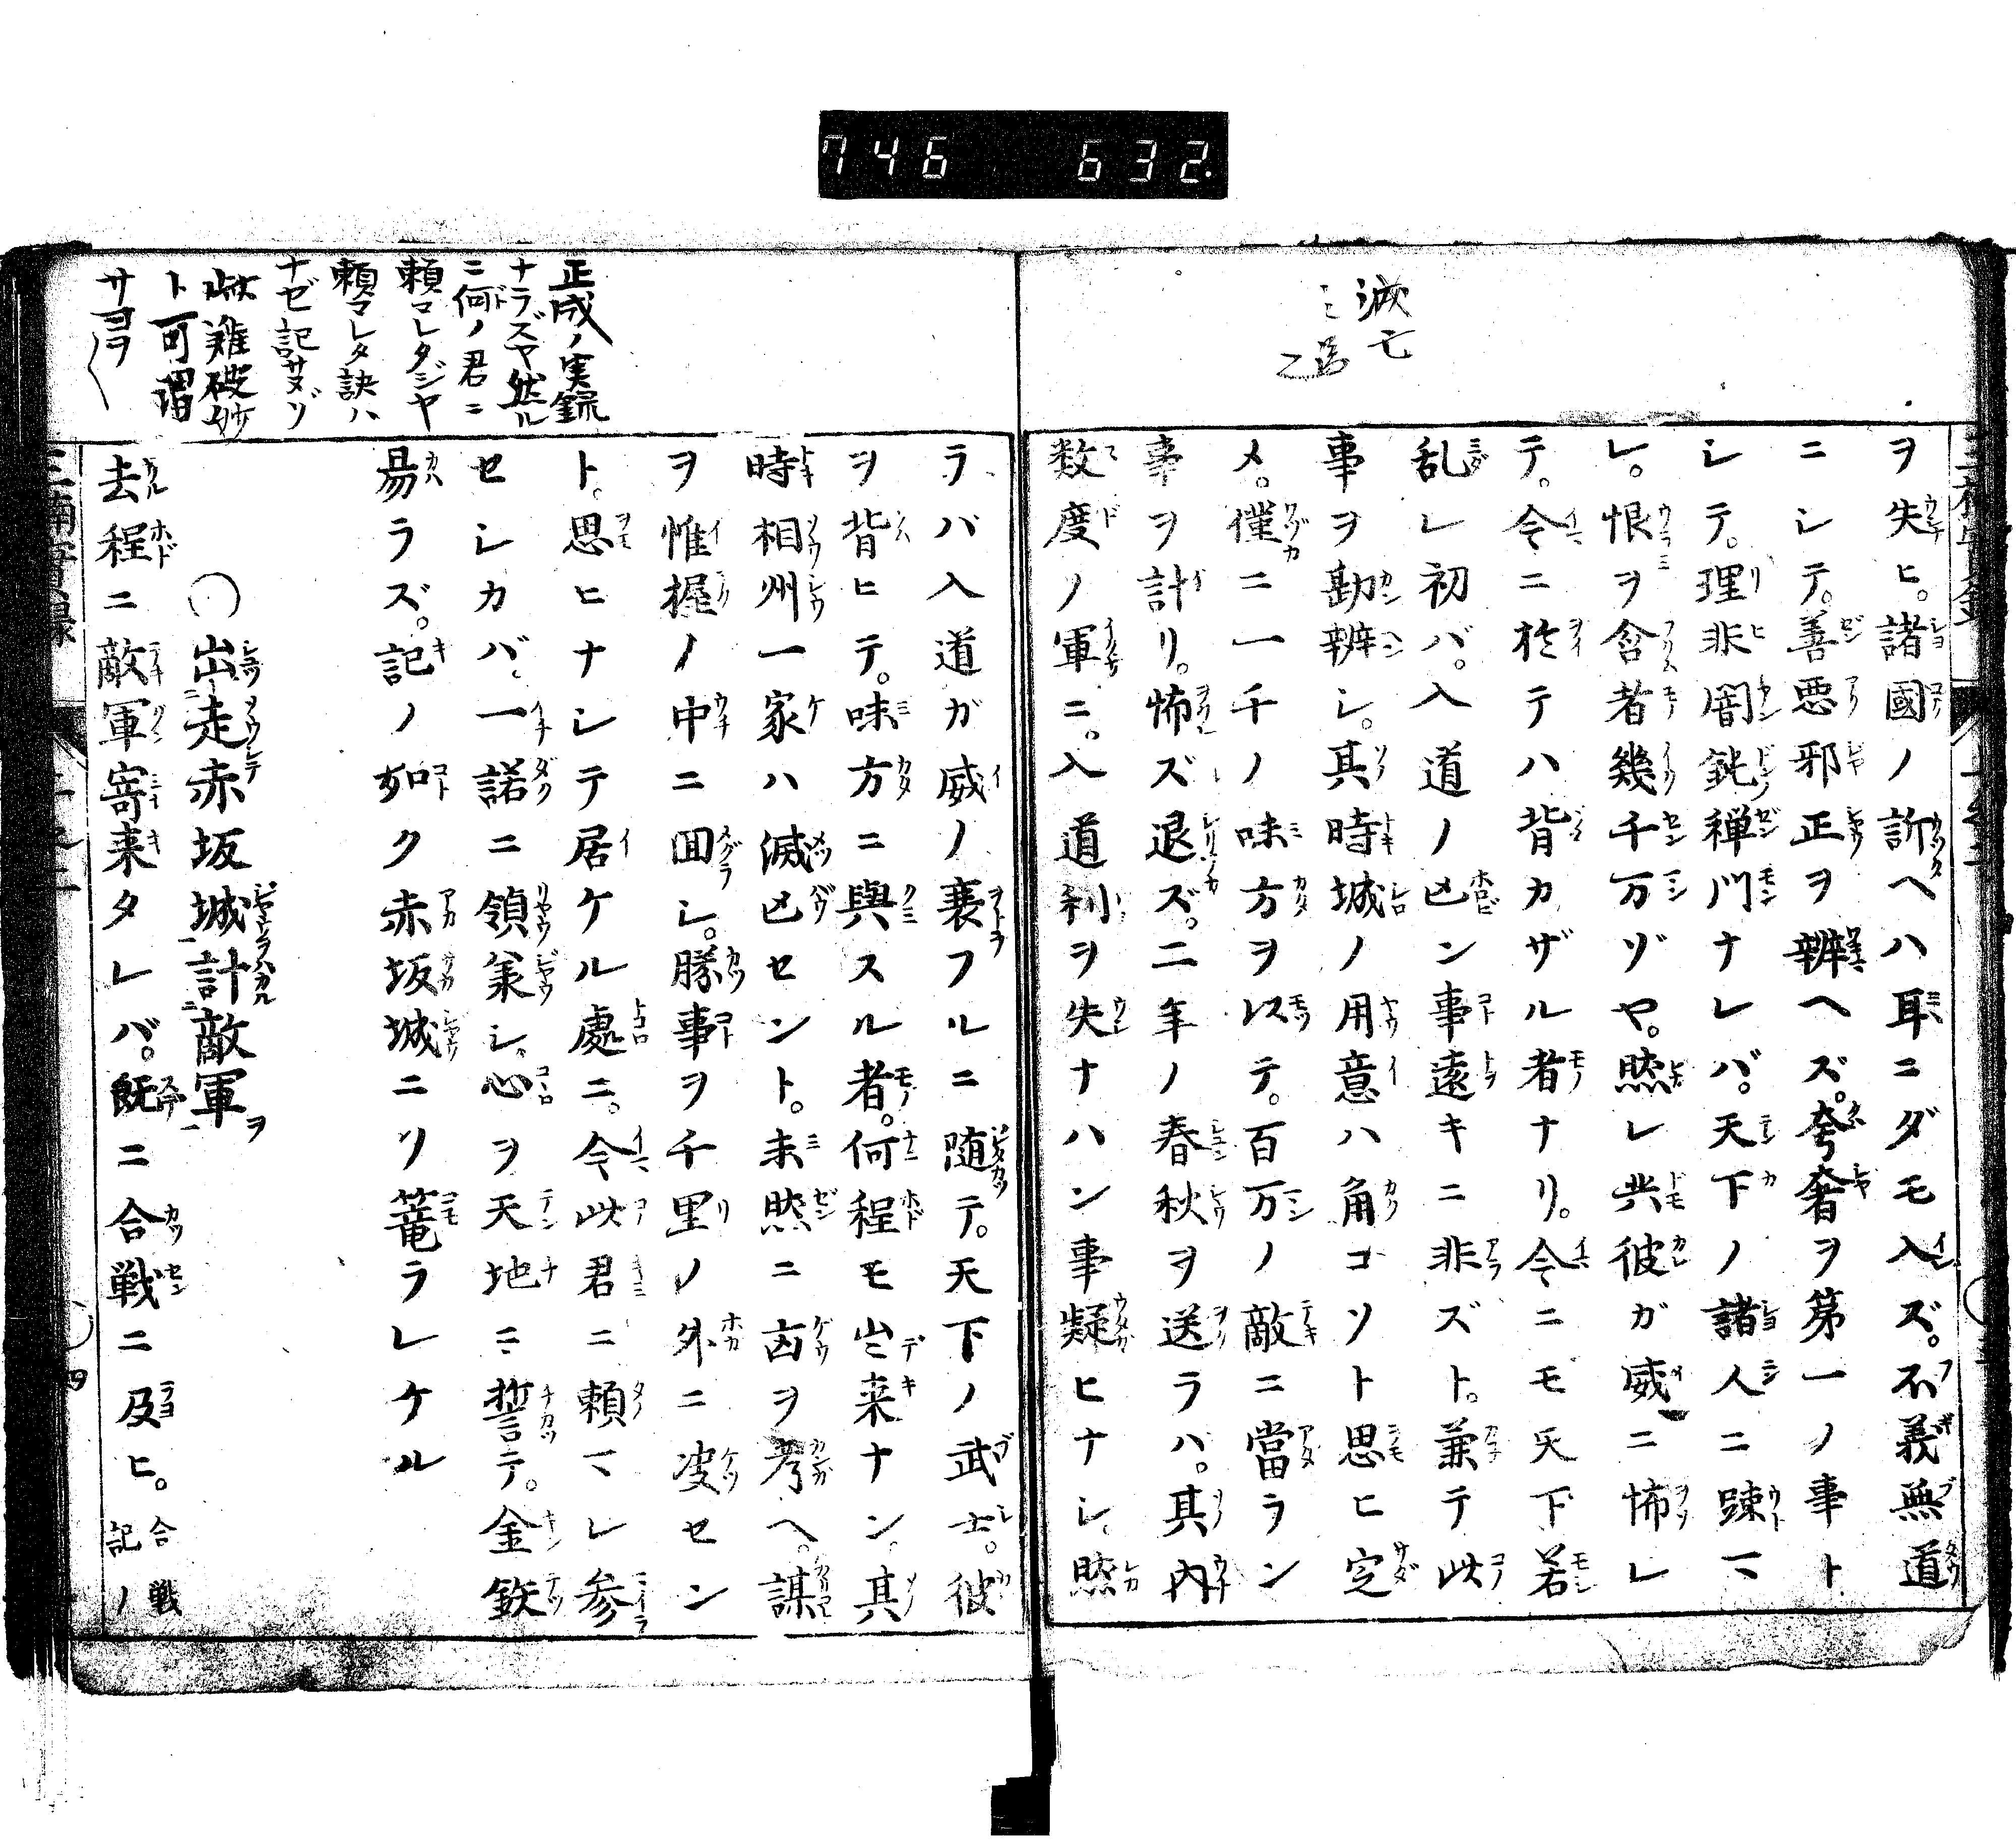 746 632.
滅亡
ヲ失ヒ。諸國ノ訴ヘハ耳ニダモ入ズ。不義無道
ニシテ。善悪邪正ヲ辨ヘズ。奢ヲ第一ノ事ト
シテ。理非闇鈍禅門ナレバ。天下ノ諸人ニ踈マ
レ。恨ヲ含者幾千万ゾヤ。然レ共彼ガ威ニ怖レ
テ。今ニ於テハ背カザル者ナリ。今ニモ天下若
乱レ初バ。入道ノ亡ン事遠キニ非ズト。兼テ此
事ヲ勘辨シ。其時城ノ用意ハ角コソト思ヒ定
メ。僅ニ一千ノ味方ヲ以テ。百万ノ敵ニ當ラン
事ヲ計リ。怖ズ退ズ。二年ノ春秋ヲ送ラハ。其内
数度ノ軍ニ。入道利ヲ失ナハン事疑ヒナシ、然
ラバ入道ガ威ノ衰フルニ随テ。天下ノ武士。彼
ヲ背ヒテ。味方ニ與スル者。何程モ出来ナン。其
時相州一家ハ滅亡セント。未然ニ吉凶ヲ考ヘ。謀
ヲ惟握ノ中ニ回シ。勝事ヲ千里ノ外ニ决セン
ト。思ヒナシテ居ケル處ニ。今此君ニ頼マレ参
セシカバ、一諾ニ領掌シ。心ヲ天地ニ誓テ。金鉄
易ラズ。記ノ如ク赤坂城ニソ篭ラレケル
〇出走赤坂城計敵軍ヲ
去程ニ敵軍寄来タレバ。既ニ合戦ニ及ヒ。合戦記ノ
正成ノ実録
ナラズヤ然ル
ニ何ドノ君ニ
頼マレタジヤ
頼マレタ訣ハ
ナゼ記サヌゾ
此難破妙
ト可謂
サヨヲ〱
四